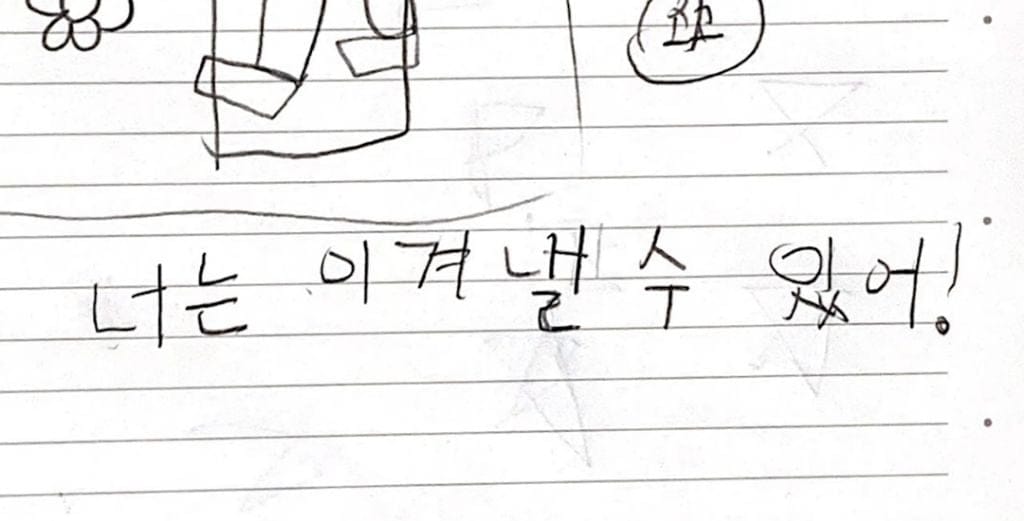 너는 이겨낼 수 있어!